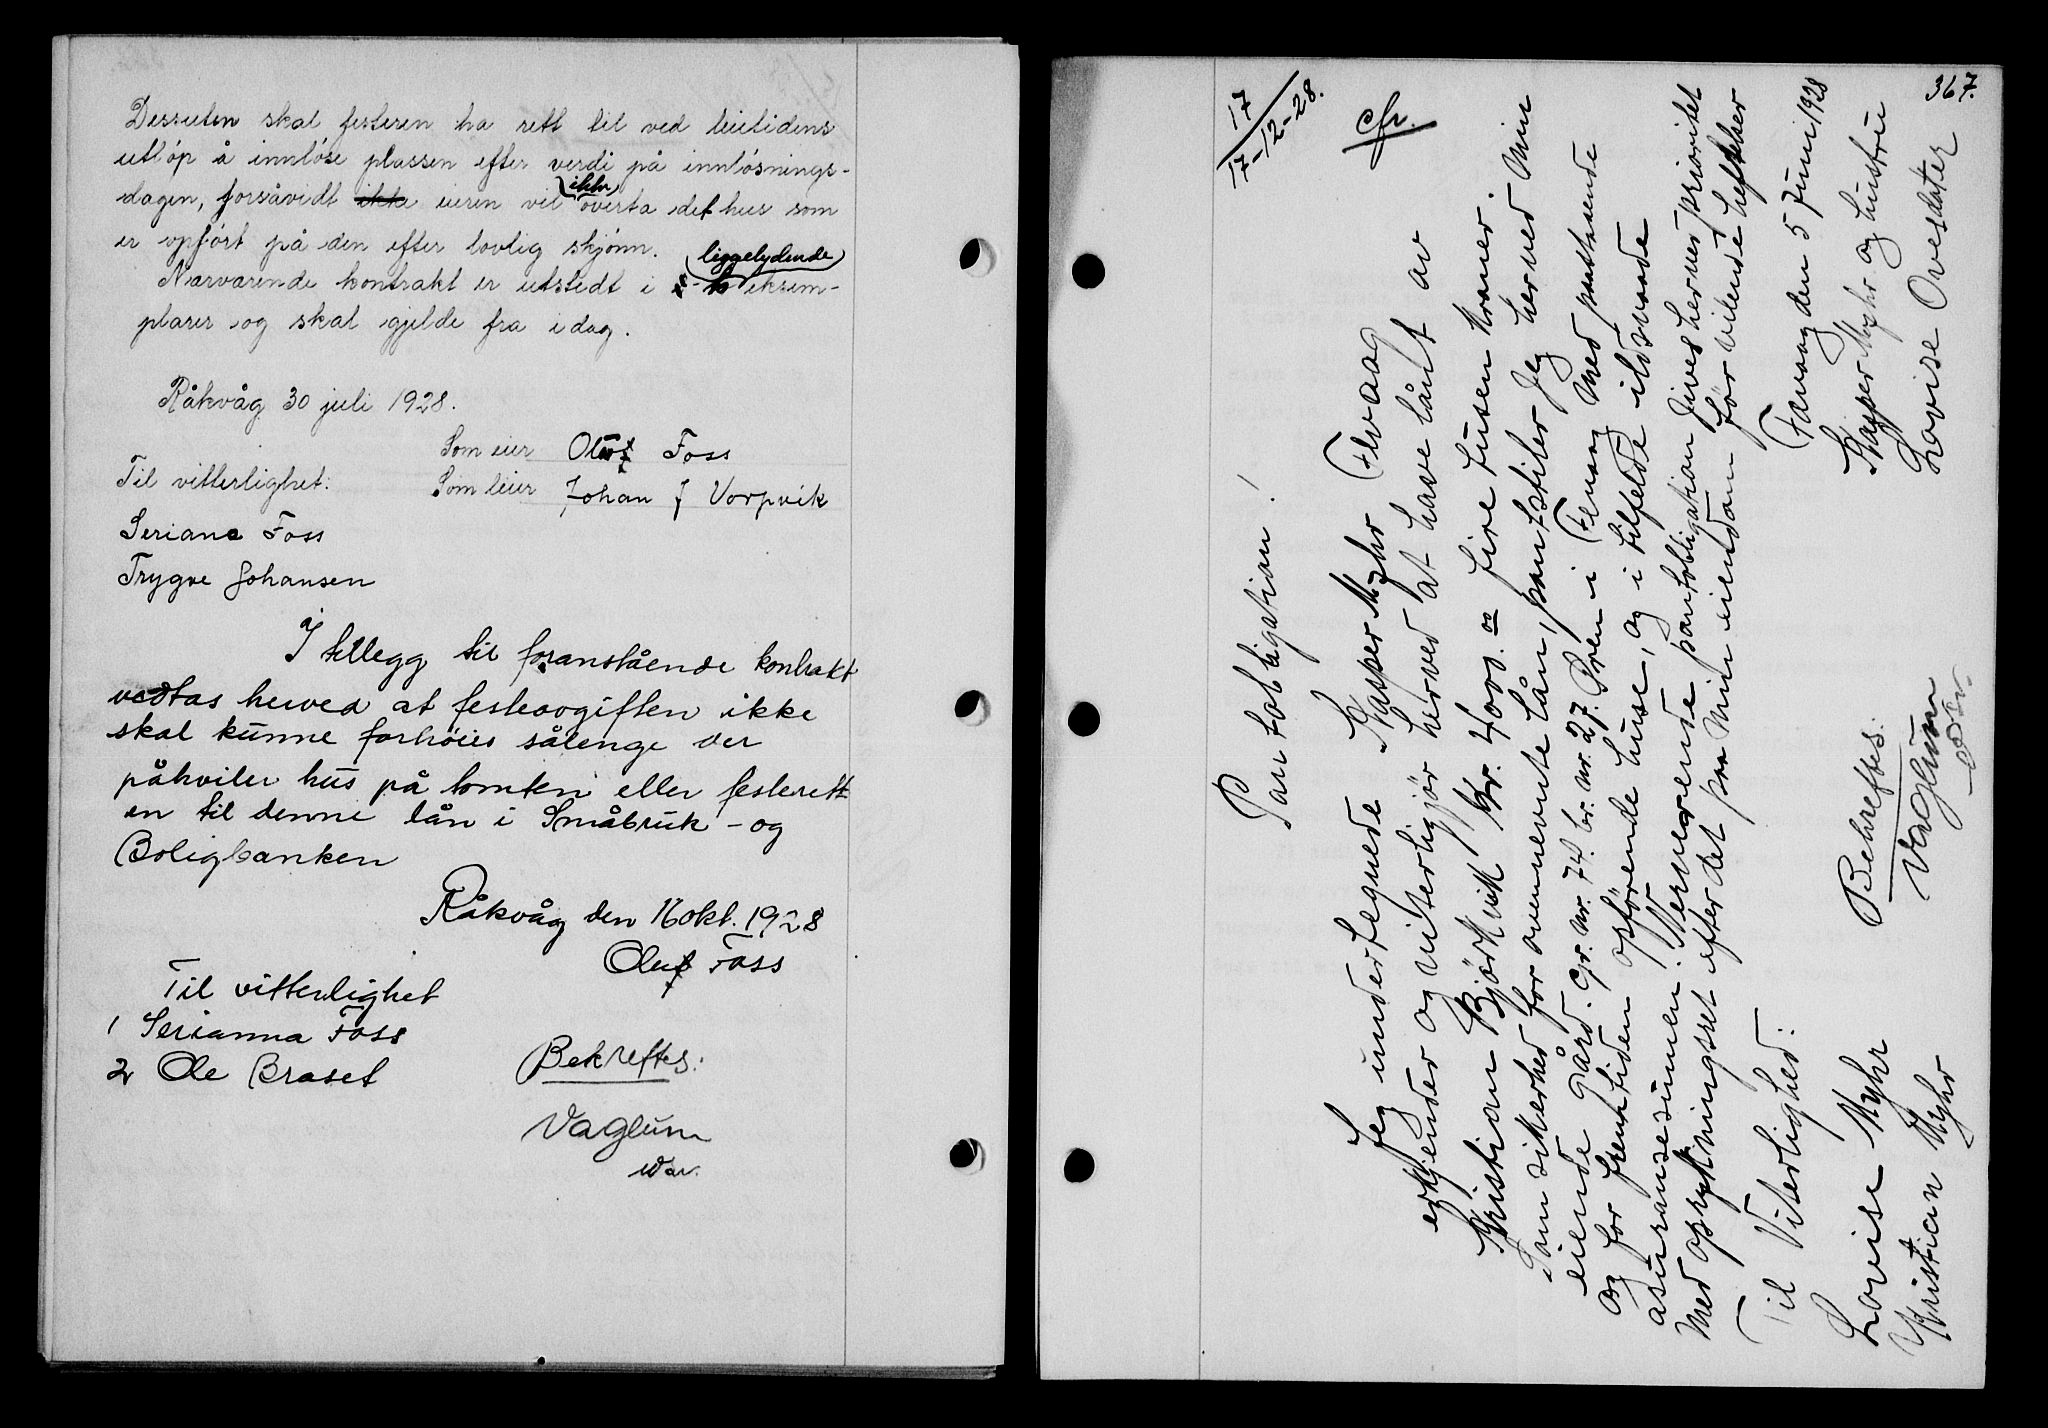 Dessuten skal festeren ha rett til ved leietidens
utlöp å innlöse plassen efter verdi på innlösnings-
dagen, forsåvidt ikke eieren vil (ikke) overta det hus som
er opfört på den efter lovlig skjönn.
Nærværende kontrakt er utstedt i 2 - to (liggelydende) eksem-
plarer og skal gjelde fra idag.
Råkvåg 30 juli 1928.
Som eier Oluf Foss
Til vitterlighet: Som leier Johan J Vorpvik
Seriana Foss
Trygve Johansen
I tillegg til foranstående kontrakt
vedtas herved at festeavgiften ikke
skal kunne forhöies sålenge der
påhviler hus på tomten eller festerett-
en til denne lån i Småbruk - og
Boligbanken
Råkvåg den 16 okt. 1928
Oluf Foss
Til vitterlighet
1 Serianna Foss
2 Ole Braset
Bekreftes:
Vaglum
367.
17
17-12-28.
cfr.
Pantobligation!
Jeg undertegnede Kasper Myhr Fevaag
erkjender og vitterligjör herved at have lånt av
Kristian Björkvik kr. 4000. = fire tusen kroner.
Som sikkerhed for ovennevnte lån, pantstiler Jeg herved Min
eiende Gård. Gr. nr. 74. br. nr. 27. Øren i Fevaag Med paastaaende
og for fremtiden opförende huse, og i tilfelde ildsvaade
asuransesummen. Nerverende pantobligation gives herved prioritet
Med oprykningsret efter det paa Min eiendom för vilende heftelser
Fævaag den 5 Juni 1928
Til Viterlighed: Kasper Myhr og hustru
Lovise Myhr Lovise Ovesdater
Kristian Myhr
Bekreftes:
Vaglum